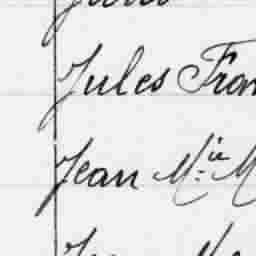 Jules Fran
Jean M.ie M